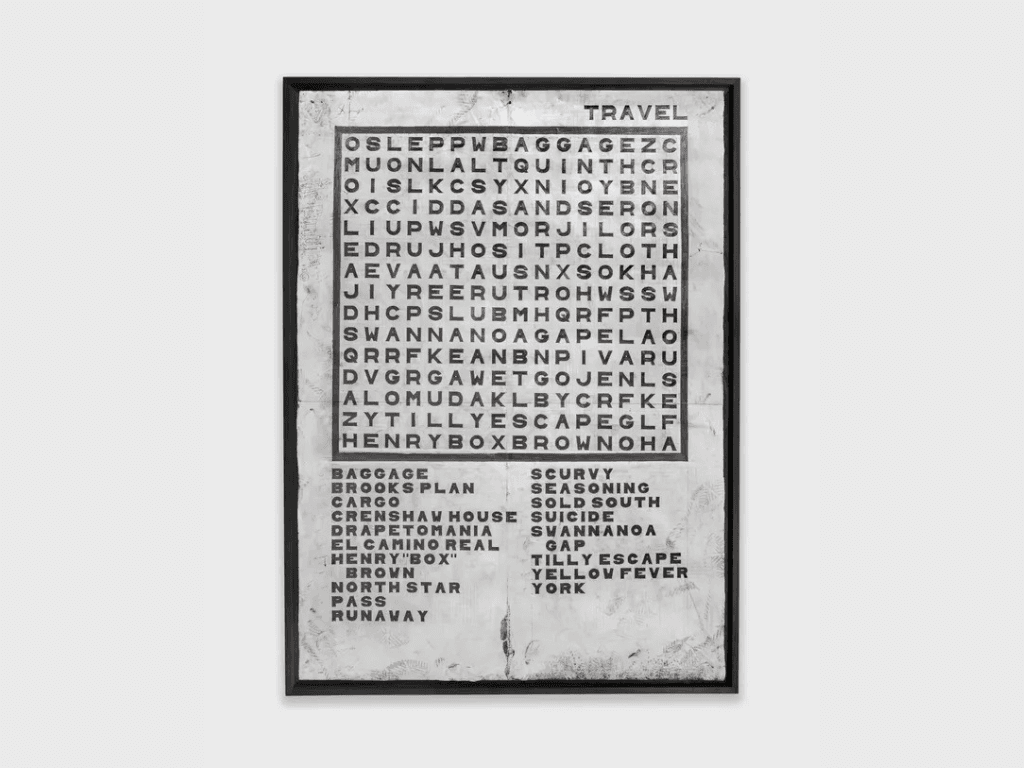 TRAVEL
OSLEPPWBAGGAGEZC
MUONLALTQUINTHCR
OISLKCSYXNIOYBNE
XCCIDDASANDSERON
LIUPWSVMORJILORS
EDRUJHOSITPCLOTH
AEVAATAUSNXSOKHA
JIYREERUTROHWSSW
DHCPSLUBMHQRFPTH
SWANNANOAGAPELAO
QRRFKEANBNPIVARU
DVGRGAWETGOJENLS
ALOMUDAKLBYCRFKE
ZYTILLYESCAPEGLF
HENRYBOXBROWNOHA
BAGGAGE
BROOKS PLAN
CARGO
CRENSHAW HOUSE
DRAPETOMANIA
EL CAMINO REAL
HENRY "BOX"
BROWN
NORTH STAR
PASS
RUNAWAY
SCURVY
SEASONING
SOLD SOUTH
SUICIDE
SWANNANOA
GAP
TILLY ESCAPE
YELLOW FEVER
YORK